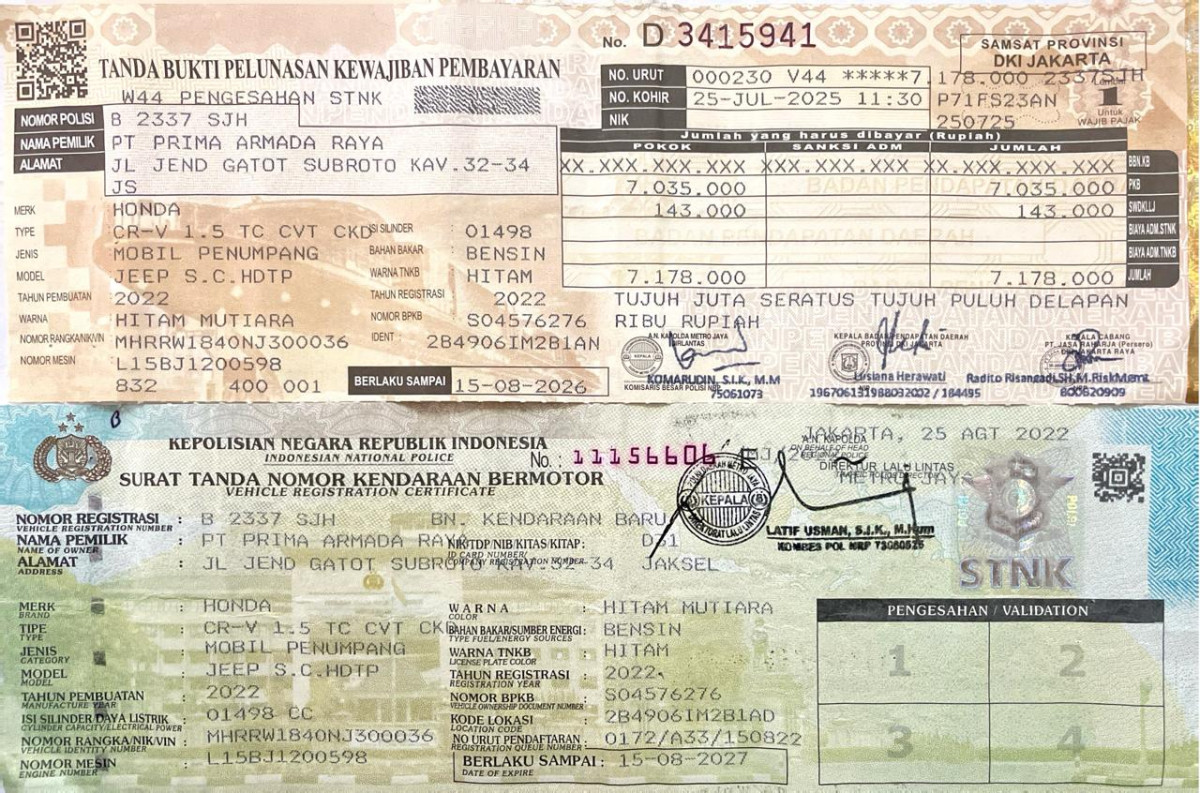 No. D 3415941
SAMSAT PROVINSI
DKI JAKARTA
TANDA BUKTI PELUNASAN KEWAJIBAN PEMBAYARAN
W44 PENGESAHAN STNK
NO. URUT 000230 V44 *****7.178.000 2337SJH
NO. KOHIR 25-JUL-2025 11:30 P71FS23AN
NIK 250725
1
Untuk
WAJIB PAJAK
NOMOR POLISI B 2337 SJH
NAMA PEMILIK PT PRIMA ARMADA RAYA
ALAMAT JL JEND GATOT SUBROTO KAV.32-34
JS
Jumlah yang harus dibayar (Rupiah)
POKOK SANKSI ADM JUMLAH
XX.XXX.XXX.XXX XXX.XXX.XXX XX.XXX.XXX.XXX BBN.KB
7.035.000 7.035.000 PKB
143.000 143.000 SWDKLLJ
BIAYA ADM.STNK
BIAYA ADM.TNKB
7.178.000 7.178.000 JUMLAH
TUJUH JUTA SERATUS TUJUH PULUH DELAPAN
RIBU RUPIAH
MERK HONDA
TYPE CR-V 1.5 TC CVT CKD ISI SILINDER : 01498
JENIS MOBIL PENUMPANG BAHAN BAKAR : BENSIN
MODEL JEEP S.C.HDTP WARNA TNKB : HITAM
TAHUN PEMBUATAN : 2022 TAHUN REGISTRASI : 2022
WARNA : HITAM MUTIARA NOMOR BPKB : S04576276
NOMOR RANGKA/NIK/VIN : MHRRW1840NJ300036 IDENT : 2B4906IM2B1AN
NOMOR MESIN : L15BJ1200598
832 400 001 BERLAKU SAMPAI 15-08-2026
A.N. KAPOLDA METRO JAYA
DIRLANTAS
KOMARUDIN, S.I.K., M.M
KOMISARIS BESAR POLISI NRP.
75061073
KEPALA BADAN PENDAPATAN DAERAH
Lusiana Herawati
196706131988032002 / 184495
KEPALA CABANG
PT. JASA RAHARJA (Persero)
DKI JAKARTA RAYA
Radito Risangadi,SH,M.RiskMgmt
800620909
KEPOLISIAN NEGARA REPUBLIK INDONESIA
INDONESIAN NATIONAL POLICE
No. : 11156606
SURAT TANDA NOMOR KENDARAAN BERMOTOR
VEHICLE REGISTRATION CERTIFICATE
JAKARTA, 25 AGT 2022
A.N. KAPOLDA
ON BEHALF OF HEAD
REGIONAL POLICE
DIREKTUR LALU LINTAS
METRO JAYA
KEPALA
LATIF USMAN, S.I.K., M.Hum
KOMBES POL NRP 73080525
STNK
NOMOR REGISTRASI : B 2337 SJH BN. KENDARAAN BARU
VEHICLE REGISTRATION NUMBER
NAMA PEMILIK : PT PRIMA ARMADA RAYA NIK/TDP/NIB/KITAS/KITAP : D31
NAME OF OWNER ID CARD NUMBER/
COMPANY REGISTRATION NUMBER
ALAMAT : JL JEND GATOT SUBROTO KAV.32-34 JAKSEL
ADDRESS
MERK : HONDA
BRAND
TIPE : CR-V 1.5 TC CVT CKD
TYPE
JENIS : MOBIL PENUMPANG
CATEGORY
MODEL : JEEP S.C.HDTP
MODEL
TAHUN PEMBUATAN : 2022
MANUFACTURE YEAR
ISI SILINDER/DAYA LISTRIK : 01498 CC
CYLINDER CAPACITY/ELECTRICAL POWER
NOMOR RANGKA/NIK/VIN : MHRRW1840NJ300036
VEHICLE IDENTITY NUMBER
NOMOR MESIN : L15BJ1200598
ENGINE NUMBER
WARNA : HITAM MUTIARA
COLOR
BAHAN BAKAR/SUMBER ENERGI : BENSIN
TYPE FUEL/ENERGY SOURCES
WARNA TNKB : HITAM
LICENSE PLATE COLOR
TAHUN REGISTRASI : 2022
REGISTRATION YEAR
NOMOR BPKB : S04576276
VEHICLE OWNERSHIP DOCUMENT NUMBER
KODE LOKASI : 2B4906IM2B1AD
LOCATION CODE
NO URUT PENDAFTARAN : 0172/A33/150822
REGISTRATION QUEUE NUMBER
BERLAKU SAMPAI : 15-08-2027
DATE OF EXPIRE
PENGESAHAN / VALIDATION
1 2
3 4